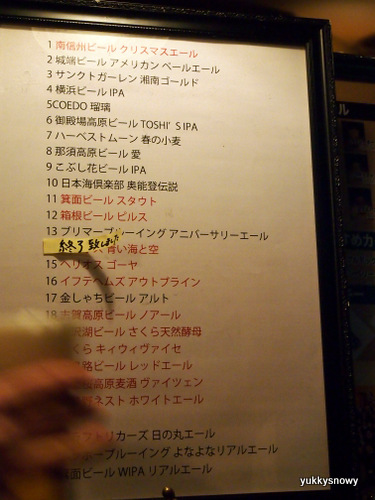 1 南信州ビール クリスマスエール
2 城端ビール アメリカン ペールエール
3 サンクトガーレン 湘南ゴールド
4 横浜ビール IPA
5COEDO 瑠璃
6 御殿場高原ビール TOSHI'S IPA
7 ハーベストムーン 春の小麦
8 那須高原ビール 愛
9 こぶし花ビール IPA
10 日本海倶楽部 奥能登伝説
11 箕面ビール スタウト
12 箱根ビール ピルス
13 プリマーブルーイング アニバーサリーエール
終了致しました
青い海と空
15 ヘリオス ゴーヤ
16 イフデヘムズ アウトブライン
17 金しゃちビール アルト
18 志賀高原ビール ノアール
沢湖ビール さくら天然酵母
くら キィウィヴァイセ
路ビール レッドエール
高原麦酒 ヴァイツェン
ネスト ホワイトエール
カーズ 日の丸エール
ホーブルーイング よなよなリアルエール
箕面ビール WIPA リアルエール
ル
yukkysnowy